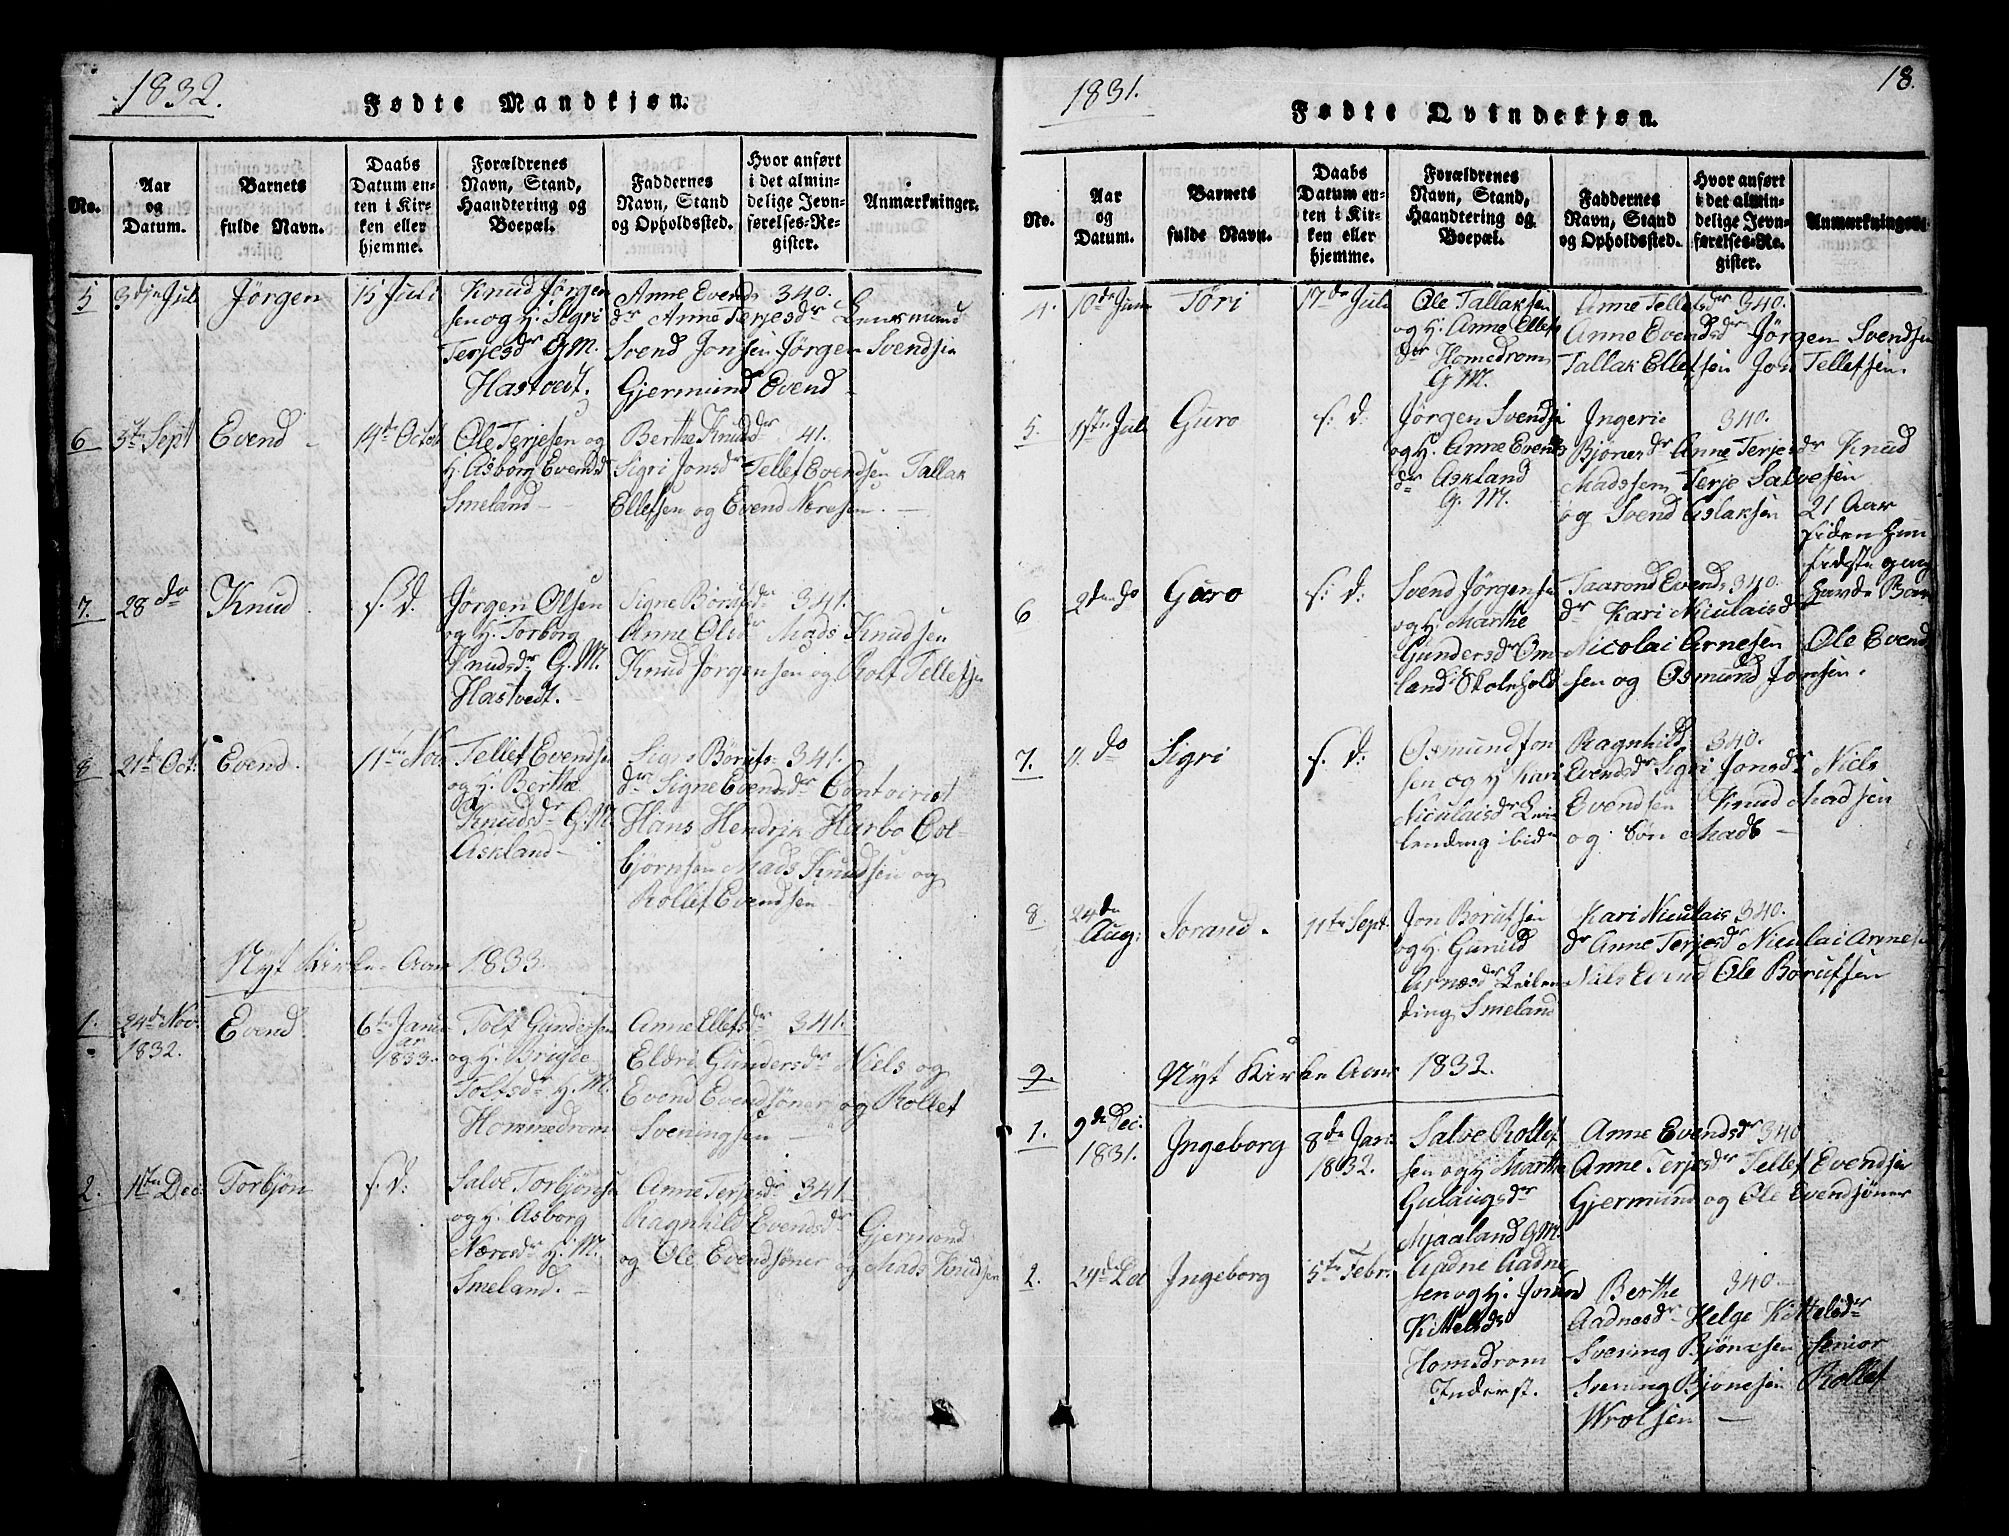 1832.
Fødte Mandkjøn.
No.
Aar og Datum.
Barnets fulde Navn.
Daabs Datum enten i Kirken eller hjemme.
Forældrenes Navn, Stand, Haandtering og Boepæl.
Faddernes Navn, Stand og Opholdssted.
Hvor anført i det almindelige Jevnførelses-Register.
Anmærkninger.
5 3die Jul Jørgen 15 Juli
Knud Jørgen
sen og H. Sigri
Terjesdr G.M.
Hastvedt.
Anne Evends 340.
dr Anne Terjesdr Lensmand
Svend Jonsen Jørgen Svendsen
Gjermund Evend
6 5te Sept Evend 14de Octob
Ole Terjesen og
H. Asborg Evensd
Smeland
Berthe Knudsdr 41.
Sigri Jonsdr Tellef Evendsen Tallak
Ellefsen og Evend Næresen.
7. 28 do Knud s. d.
Jørgen Olsen
og H. Torborg
Knudsdr G.M.
Hastvedt.
Signe Børufsdr 341.
Anne Olsdr Mads Knudsen
Knud Jørgensen og Rolf Tellefsen
8 21de Oct. Evend. 11te Nov
Tellef Evends
og H. Berthe
Knudsdr G.M.
Askland
Signe Børufs- 341.
dr Signe Evendsdr Contoirist
Hans Hendrik Harbo Col-
bjørnsen Mads Knudsen og
Rollef Evendsen
Nyt Kirke-Aar 1833.
1. 24de Nov. 1832. Evend. 6te Januar 1833.
Tolf Gundersen
og H. Brigde
Tolfsdr H. M.
Hommedrom
Anne Ellefsdr 341.
Eldri Gundersdr Niels og
Evend Evendsøner og Rollef
Sveningsen
2. 11te Dec Torbjøn s. d.
Salve Torbjøns
og H. Asborg
Næresdr H. M.
Smeland.
Anne Terjesdr 341
Ragnhild Evendsdr Gjermond
og Ole Evendsøner og Mads Knudsen
1831.
18.
Fødte Qvindekjøn.
No.
Aar og Datum.
Barnets fulde Navn.
Daabs Datum enten i Kirken eller hjemme.
Forældrenes Navn, Stand, Haandtering og Boepæl.
Faddernes Navn, Stand og Opholdssted.
Hvor anført i det almindelige Jevnførelses-Register.
Anmærkninger.
4. 10de Juni Tøri 17de Juli
Ole Tallaksen
og H. Anne Ellefs
dr Homedrom
G M.
Anne Tellefsdr 340.
Anne Evendsdr Jørgen Svendsen
Tallak Ellefsen Jon Tellefsen.
5. 1ste Jul Guro s. d.
Jørgen Svends
og H. Anne Evends
dr Askland
G. M.
Ingerie 340.
Bjønesdr Anne Terjesdr Knud
Madssen Terje Salvesen
og Svend Aslaksen
21 Aar
siden hun
sidste gang
havde Barn
6 2den do Guro s. d.
Svend Jørgense
og H. Marthe
Gundersdr Om
land Skolehold
Taarond Evends 340.
dr Kari Niculaisdr
Nicolai Arnesen Ole Evend
sen og Osmund Jonsen.
7. 11. do Sigri s. d.
Osmund Jon
sen og H Kari
Niculaisdr Lei
lending ibid
Ragnhild 340.
Evendsdr Sigri Jonsdr Niels
Evendsen Knud Madsen
og Søn Mads
8. 24de Aug: Jorand. 11te Sept.
Jon Børufsen
og H. Gunild
Arnesdr Leilen
ding Smeland
Kari Niculais 340.
dr Anne Terjesdr Niculai Arnese
Niels Evend Ole Børufsen
9. Nyt Kirke Aar 1832.
1. 9de Dec. 1831. Ingeborg 8de Jan. 1832.
Salve Rollef
sen og H Marthe
Gulaugsdr
Mjaaland GM.
Anne Evendsdr 340
Anne Terjesdr Tellef Evendsen
Gjermund og Ole Evendsøner
2. 24de Ingeborg 5te Febr.
Aadne Aadne
sen og H. Joran
Kittelsdr
Homedrom
Inderst.
Berthe 340.
Aadnesdr Helge Kittelsdr
Svening Bjønesen senior
Svening Bjønesen Rollef
Wrolsen